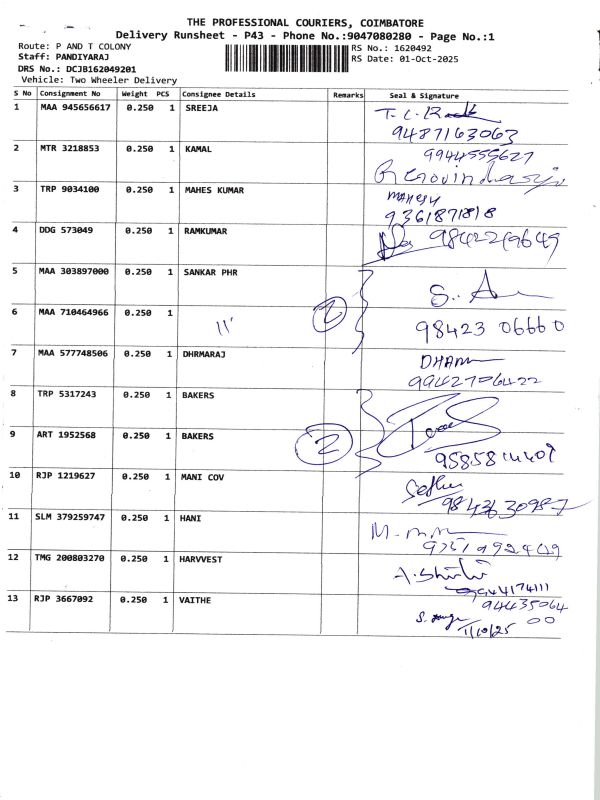 THE PROFESSIONAL COURIERS, COIMBATORE
Delivery Runsheet - P43 - Phone No.:9047080280 - Page No.:1
Route: P AND T COLONY
RS No.: 1620492
Staff: PANDIYARAJ
RS Date: 01-Oct-2025
DRS No.: DCJB162049201
Vehicle: Two Wheeler Delivery
S No Consignment No Weight PCS Consignee Details Remarks Seal & Signature
1 MAA 945656617 0.250 1 SREEJA
9487163063
2 MTR 3218853 0.250 1 KAMAL 9944555627
3 TRP 9034100 0.250 1 MAHES KUMAR
MAHESH
9361871818
4 DDG 573049 0.250 1 RAMKUMAR
5 MAA 303897000 0.250 1 SANKAR PHR
6 MAA 710464966 0.250 1 11 2
98423 06660
7 MAA 577748506 0.250 1 DHRMARAJ
9942706422
8 TRP 5317243 0.250 1 BAKERS
9 ART 1952568 0.250 1 BAKERS 2
10 RJP 1219627 0.250 1 MANI COV
11 SLM 379259747 0.250 1 HANI
12 TMG 200803270 0.250 1 HARVVEST
9944174111
13 RJP 3667092 0.250 1 VAITHE 94435064
00
1/10/25